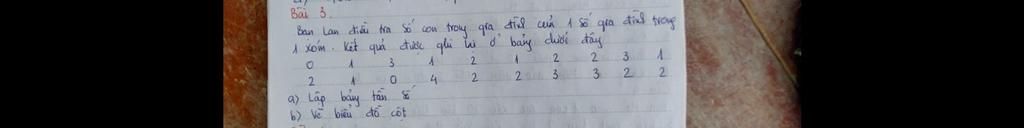 Bài 3.
Bạn Lan điều tra số con trong gia đình của 1 số gia đình trong
1 xóm. Kết quả được ghi lại ở bảng dưới đây
0 1 3 1 2 1 2 2 3 1
2 1 0 4 2 2 3 3 2 2
a) Lập bảng tần số
b) Vẽ biểu đồ cột